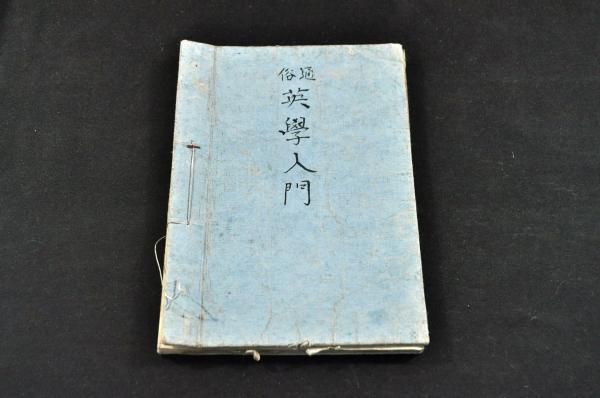 通俗
英學入門